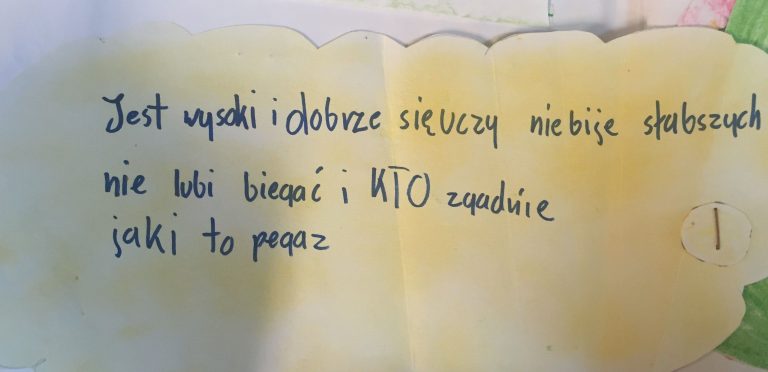 Jest wysoki i dobrze sięuczy niebije słabszych
nie lubi biegać i KTO zgadnie
jaki to pegaz
1